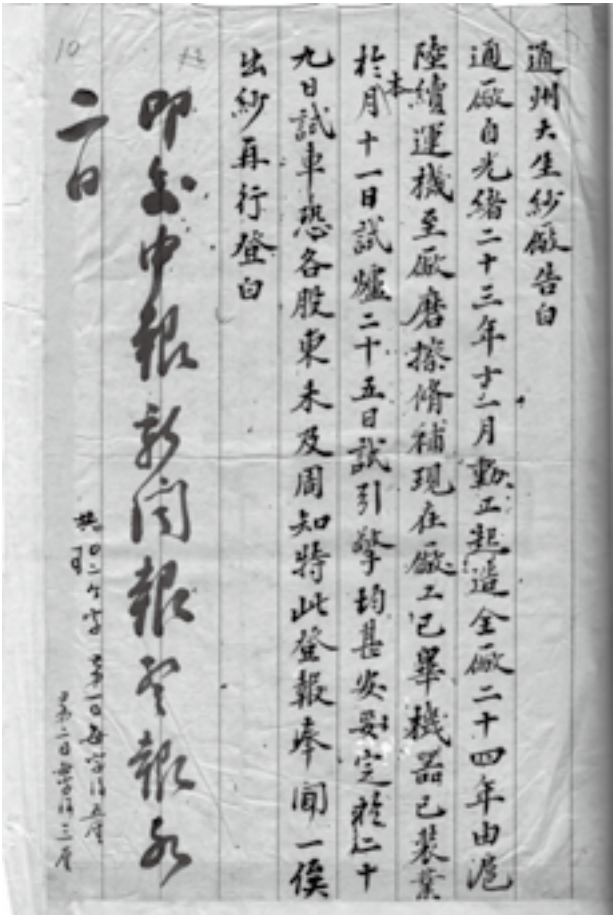 10
通州大生紗廠告白
通廠自光緒二十三年十二月動工起造全廠二十四年由滬
陸續運機至廠磨擦脩補現在廠工已畢機器已裝業
於本月十一日試爐二十五日試引擎均甚安妥定於二十
九日試車恐各股東未及周知特此登報奉聞一俟
出紗再行登白
即交申報新聞報登報
二日
共 个字 第一日每字洋五厘
第二日每字洋三厘